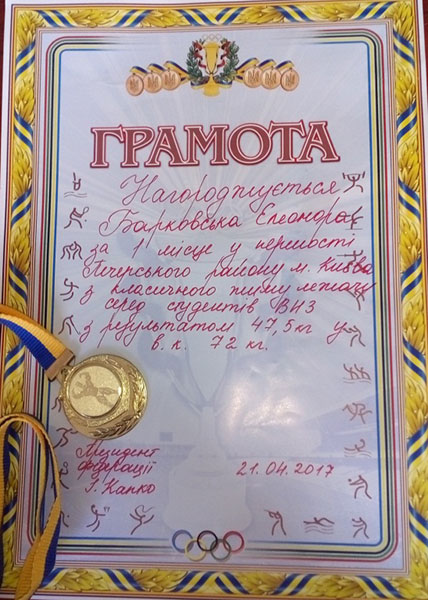 ГРАМОТА
Нагороджується
Барковська Елеонора
за 1 місце у першості
Печерського району м. Києва
з класичного жиму лежачи
серед студентів ВНЗ
з результатом 47,5кг у
в. к. 72 кг.
Президент
федерації
Г. Капко
21.04.2017